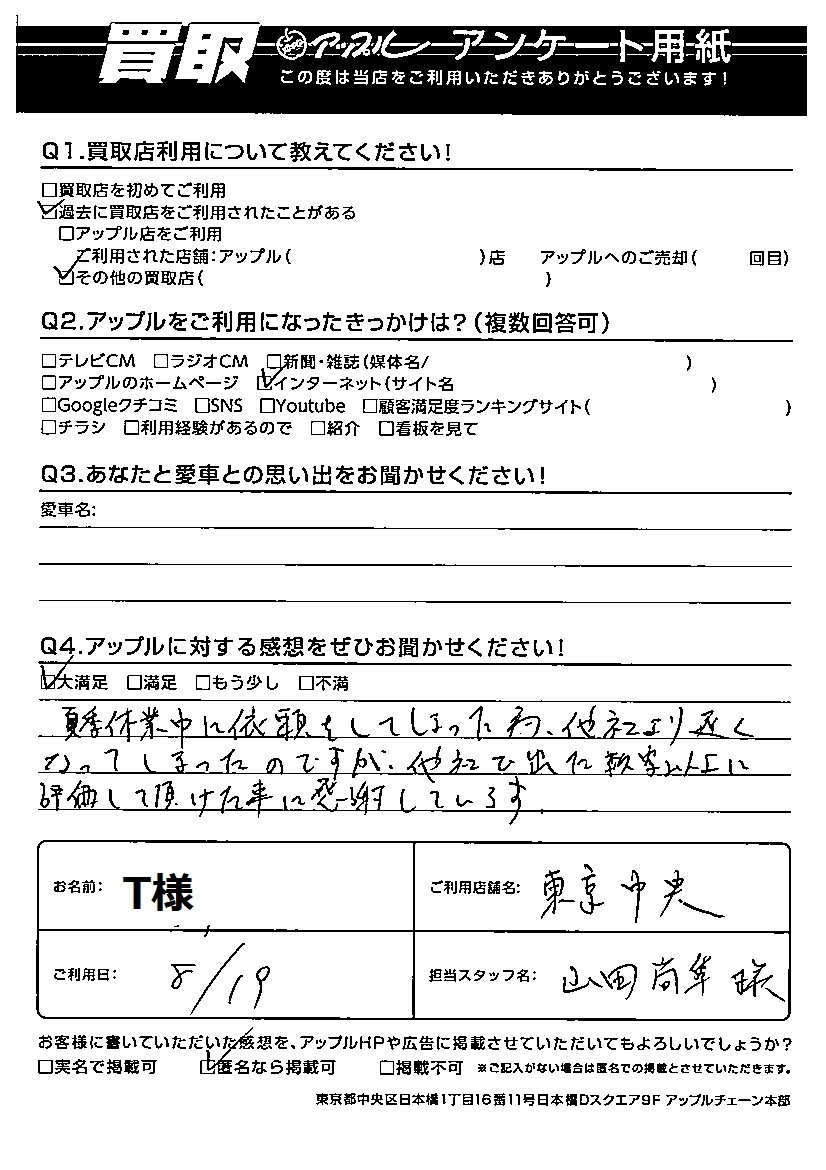 買取 アップル アンケート用紙
この度は当店をご利用いただきありがとうございます!
Q1.買取店利用について教えてください!
□買取店を初めてご利用
☑過去に買取店をご利用されたことがある
□アップル店をご利用
ご利用された店舗:アップル( )店 アップルへのご売却( 回目)
☑その他の買取店( )
Q2.アップルをご利用になったきっかけは?(複数回答可)
□テレビCM □ラジオCM □新聞・雑誌(媒体名/ )
□アップルのホームページ ☑インターネット(サイト名 )
□Googleクチコミ □SNS □Youtube □顧客満足度ランキングサイト( )
□チラシ □利用経験があるので □紹介 □看板を見て
Q3.あなたと愛車との思い出をお聞かせください!
愛車名:
Q4.アップルに対する感想をぜひお聞かせください!
☑大満足 □満足 □もう少し □不満
夏季休業中に依頼をしてしまった為、他社より遅く
なってしまったのですが、他社で出た数字以上に
評価して頂けた事に感謝しています。
お名前: T様 ご利用店舗名: 東京中央
ご利用日: 8/19 担当スタッフ名: 山田 様
お客様に書いていただいた感想を、アップルHPや広告に掲載させていただいてもよろしいでしょうか?
□実名で掲載可 ☑匿名なら掲載可 □掲載不可 ※ご記入がない場合は匿名での掲載とさせていただきます。
東京都中央区日本橋1丁目16番11号日本橋Dスクエア9F アップルチェーン本部